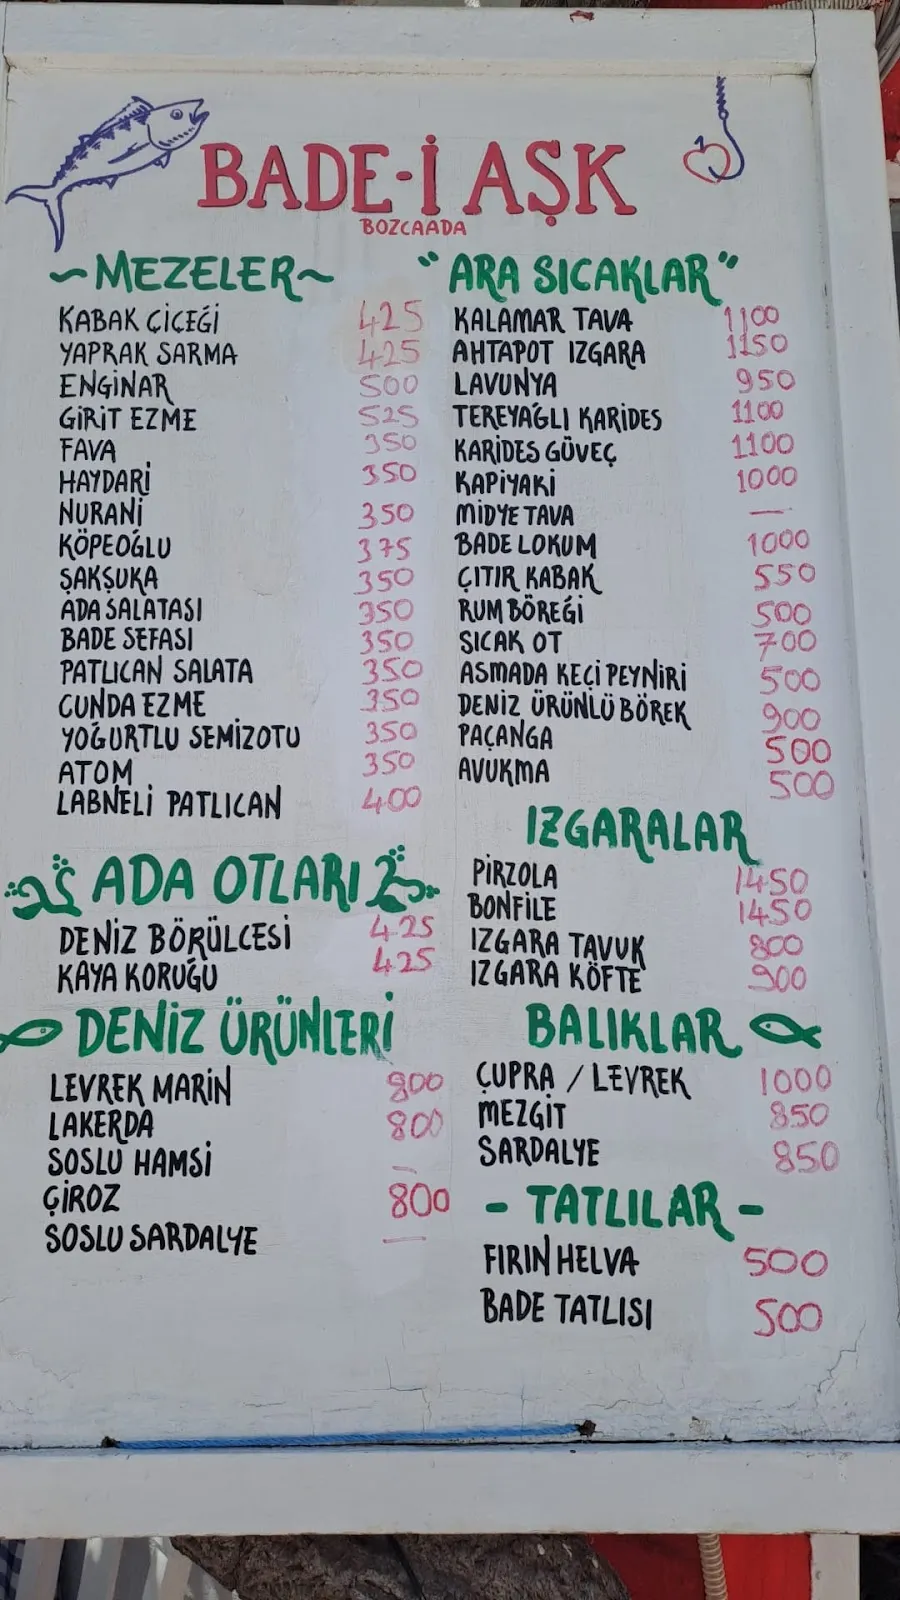 BADE-İ AŞK
BOZCAADA
~MEZELER~
KABAK ÇİÇEĞİ 425
YAPRAK SARMA 425
ENGINAR 500
GİRİT EZME 525
FAVA 350
HAYDARİ 350
NURANİ 350
KÖPEOĞLU 375
ŞAKŞUKA 350
ADA SALATASI 350
BADE SEFASI 350
PATLICAN SALATA 350
CUNDA EZME 350
YOĞURTLU SEMİZOTU 350
ATOM 350
LABNELİ PATLICAN 400
ADA OTLARI
DENİZ BÖRÜLCESİ 425
KAYA KORUĞU 425
DENİZ ÜRÜNLERİ
LEVREK MARİN 800
LAKERDA 800
SOSLU HAMSİ —
ÇİROZ 800
SOSLU SARDALYE —
"ARA SICAKLAR"
KALAMAR TAVA 1100
AHTAPOT IZGARA 1150
LAVUNYA 950
TEREYAĞLI KARİDES 1100
KARİDES GÜVEÇ 1100
KAPİYAKİ 1000
MİDYE TAVA —
BADE LOKUM 1000
ÇITIR KABAK 550
RUM BÖREĞİ 500
SICAK OT 700
ASMADA KEÇİ PEYNİRİ 500
DENİZ ÜRÜNLÜ BÖREK 900
PAÇANGA 500
AVUKMA 500
IZGARALAR
PİRZOLA 1450
BONFİLE 1450
IZGARA TAVUK 800
IZGARA KÖFTE 900
BALIKLAR
ÇUPRA / LEVREK 1000
MEZGİT 850
SARDALYE 850
- TATLILAR -
FIRIN HELVA 500
BADE TATLISI 500